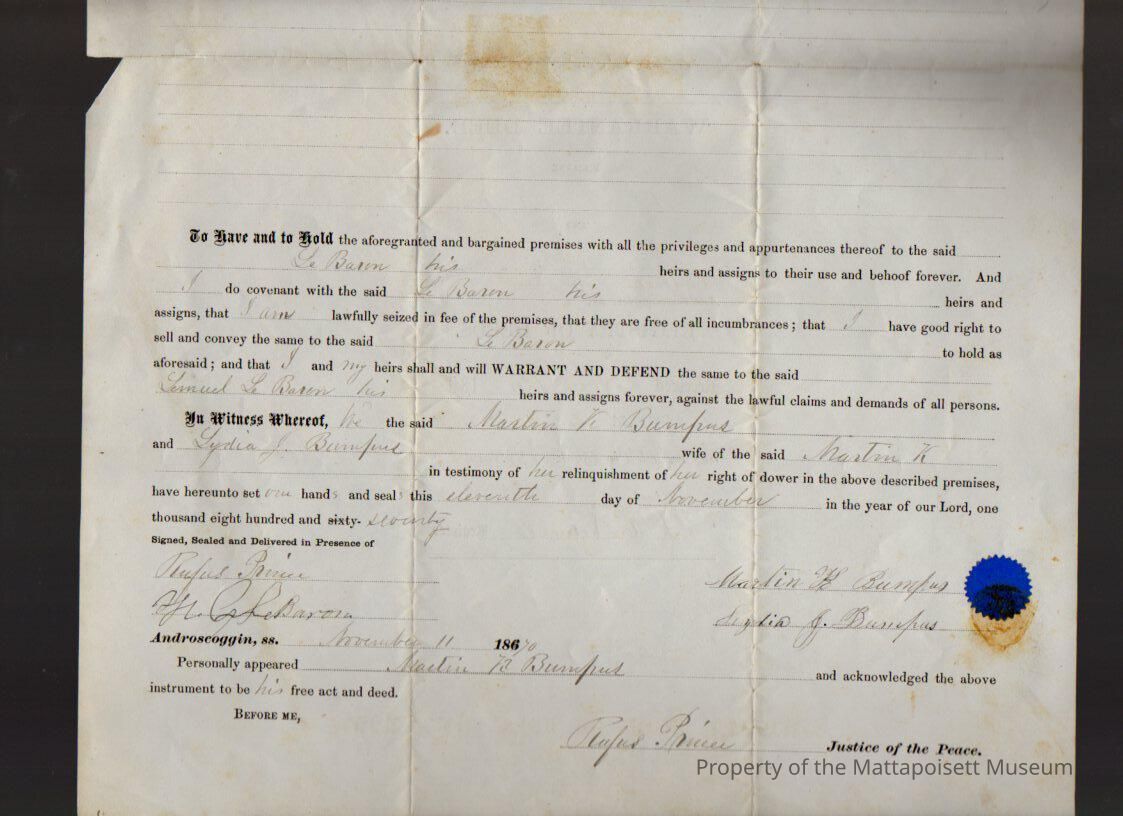 To Have and to Hold the aforegranted and bargained premises with all the privileges and appurtenances thereof to the said
Le Baron his heirs and assigns to their use and behoof forever. And
I do covenant with the said Le Baron his heirs and
assigns, that I am lawfully seized in fee of the premises, that they are free of all incumbrances; that I have good right to
sell and convey the same to the said Le Baron to hold as
aforesaid; and that I and my heirs shall and will WARRANT AND DEFEND the same to the said
Lemuel Le Baron his heirs and assigns forever, against the lawful claims and demands of all persons.
In Witness Whereof, We the said Martin K Bumpus
and Lydia J. Bumpus wife of the said Martin K
in testimony of her relinquishment of her right of dower in the above described premises,
have hereunto set our hands and seals this eleventh day of November in the year of our Lord, one
thousand eight hundred and sixty- seventy
Signed, Sealed and Delivered in Presence of
Rufus Prince
LeBaron
Martin K Bumpus
Lydia J. Bumpus
Androscoggin, ss. November 11 18670
Personally appeared Martin K Bumpus and acknowledged the above
instrument to be his free act and deed.
BEFORE ME,
Rufus Prince Justice of the Peace.
Property of the Mattapoisett Museum